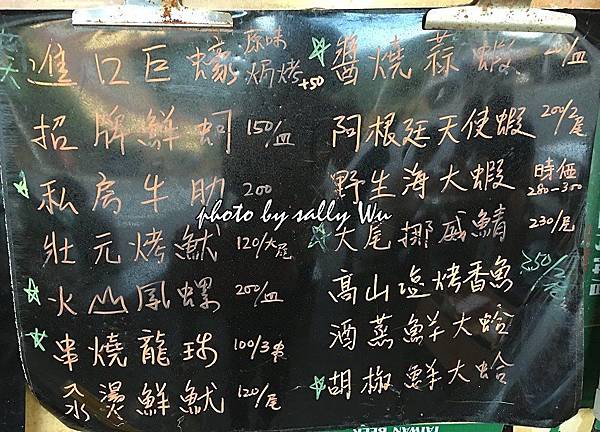 進口巨蠔 原味 焗烤 +50
招牌鮮蚵 150/皿
私房牛肋 200
壯元烤魷 120/大尾
火山鳳螺 200/皿
串燒龍珠 100/3串
汆燙鮮魷 120/尾
醬燒蒜蝦 /皿
阿根廷天使蝦 200/2尾
野生海大蝦 時價 280-300
大尾挪威鯖 230/尾
高山塩烤香魚 250/2
酒蒸鮮大蛤
胡椒鮮大蛤
photo by sally Wu
TAIWAN BEER